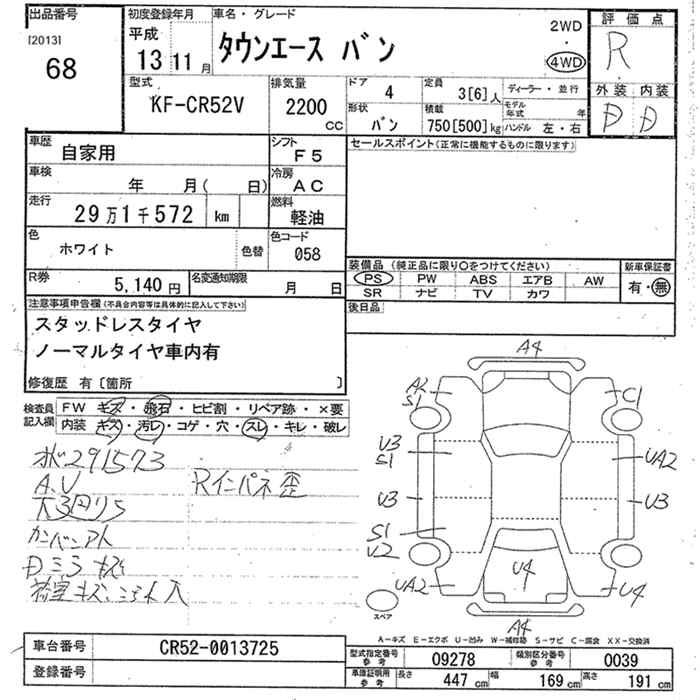 出品番号
[2013]
68
初度登録年月
平成
13 11 月
車名・グレード
タウンエース バン
2WD
・
4WD
評価点
R
外装 内装
D D
型式
KF-CR52V
排気量
2200 CC
ドア 4
形状 バン
定員 3[6] 人
積載 750[500] kg
ディーラー・並行
モデル年式 年
ハンドル 左・右
車歴 自家用
シフト F5
セールスポイント(正常に機能するものに限ります)
車検 年 月( 日)
冷房 AC
走行 29万1千572 km
燃料 軽油
色 ホワイト 色替
色コード 058
装備品 (純正品に限り○をつけてください)
新車保証書
PS PW ABS エアB AW
SR ナビ TV カワ
有・無
R券 5,140 円
名変通知期限 月 日
後日品
注意事項申告欄(不具合内容等は具体的に記入して下さい)
スタッドレスタイヤ
ノーマルタイヤ車内有
修復歴 有〔箇所 〕
検査員記入欄
FW キズ・飛石・ヒビ割・リペア跡・×要
内装 キズ・汚レ・コゲ・穴・スレ・キレ・破レ
291573
A.U
Rインパネ歪
カンバンアト
Dミラーキズ
A4
A2
S1
C1
U3
S1
UA2
U3
U3
S1
U2
UA2
U4
U4
A4
スペア
A-キズ E-エクボ U-凹み W-補修跡 S-サビ C-腐食 XX-交換済
車台番号 CR52-0013725
登録番号
型式指定番号 参考 09278
類別区分番号 参考 0039
車庫証明用 参考 長さ 447 cm 幅 169 cm 高さ 191 cm